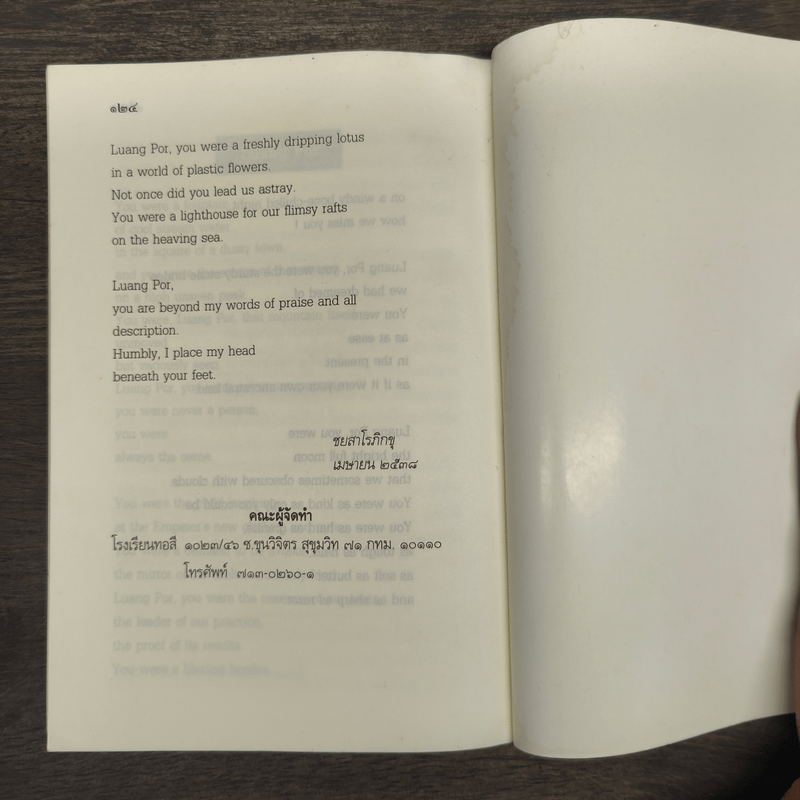 ๑๒๔
Luang Por, you were a freshly dripping lotus
in a world of plastic flowers.
Not once did you lead us astray.
You were a lighthouse for our flimsy rafts
on the heaving sea.
Luang Por,
you are beyond my words of praise and all
description.
Humbly, I place my head
beneath your feet.
ชยสาโรภิกขุ
เมษายน ๒๕๓๘
คณะผู้จัดทำ
โรงเรียนทอสี ๑๐๒๓/๔๖ ซ.ขุนวิจิตร สุขุมวิท ๗๑ กทม. ๑๐๑๑๐
โทรศัพท์ ๗๑๓-๐๒๖๐-๑